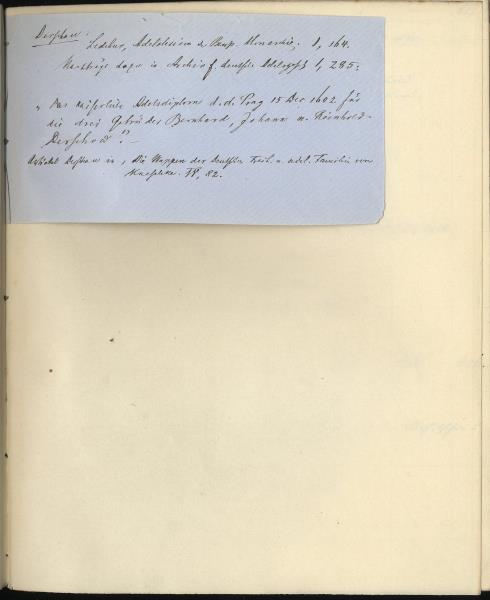 Derschau:
Ledebur, Adelslexicon d. Preuß. Monarchie. I, 164.
Nachträge dazu in Archiv f. deutsche Adelsgesch. I, 285:
"Das kaiserliche Adelsdiplom d. d. Prag 15 Dec 1602 für
die drei Gebrüder Bernhard, Johann u. Reinhold
Derschow."
Artikel Derschau in, Die Wappen der deutschen Freih. u. adel. Familien von
Kneschke. IV, 82.